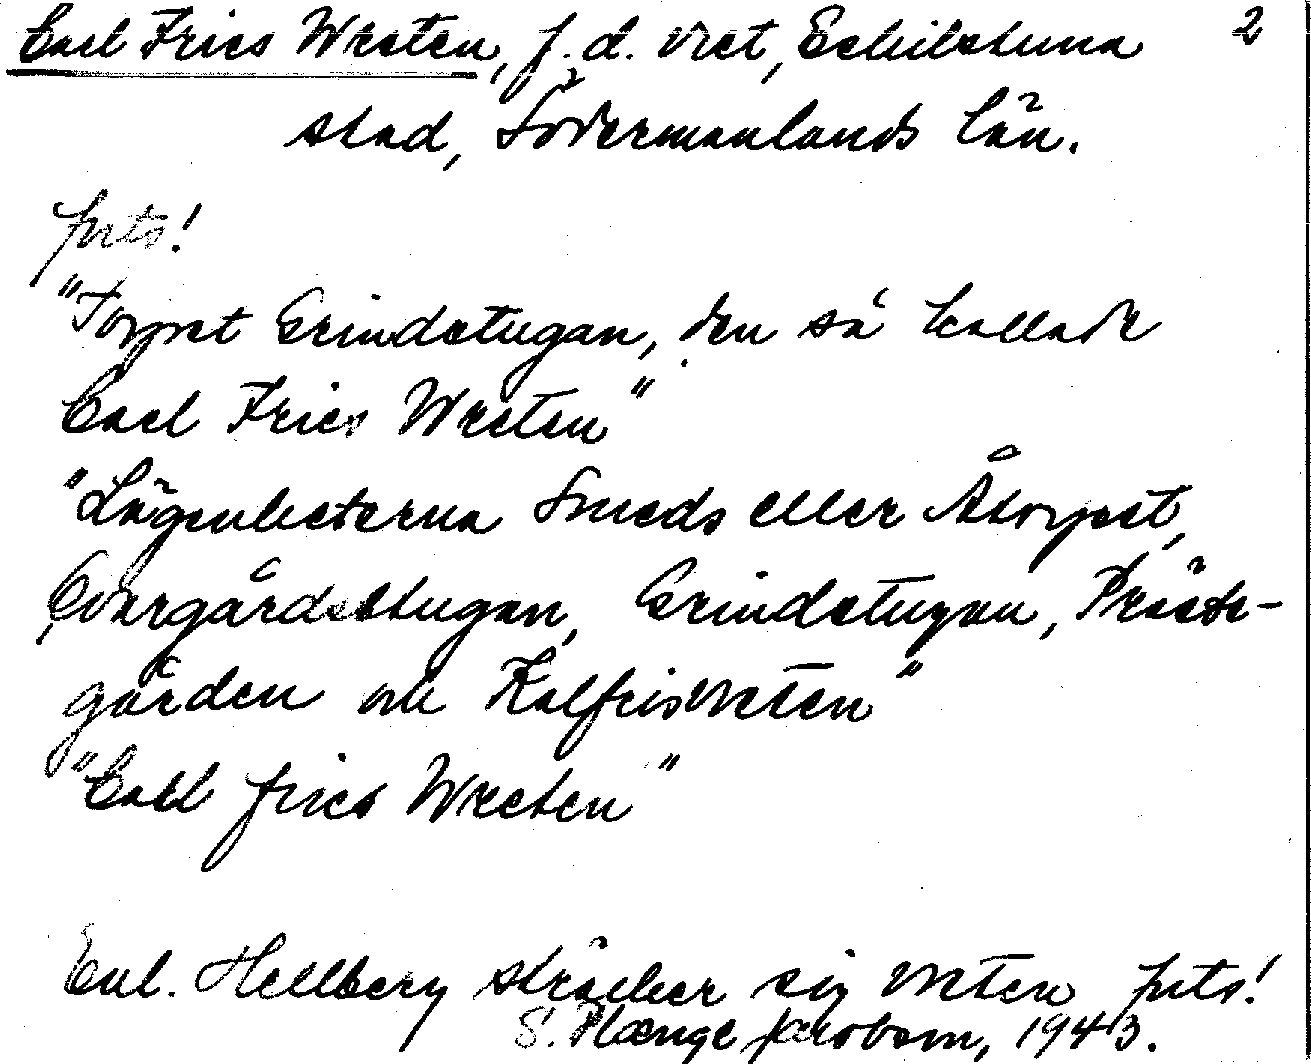 Carl Fries Wreten, f.d. vret, Eskilstuna 2
stad, Södermanlands län.
forts!
"Torpet Grindstugan, den så kallade
Carl Fries Wreten"
"Lägenheterna Smeds eller Åtorpet,
Qvarngårdsstugan, Grindstugan, Präst-
gården och Kalfrisvreten"
"Carl fries Wreten"
Enl. Hellberg sträcker sig vreten forts!
S. Plænge Jacobson, 1943.